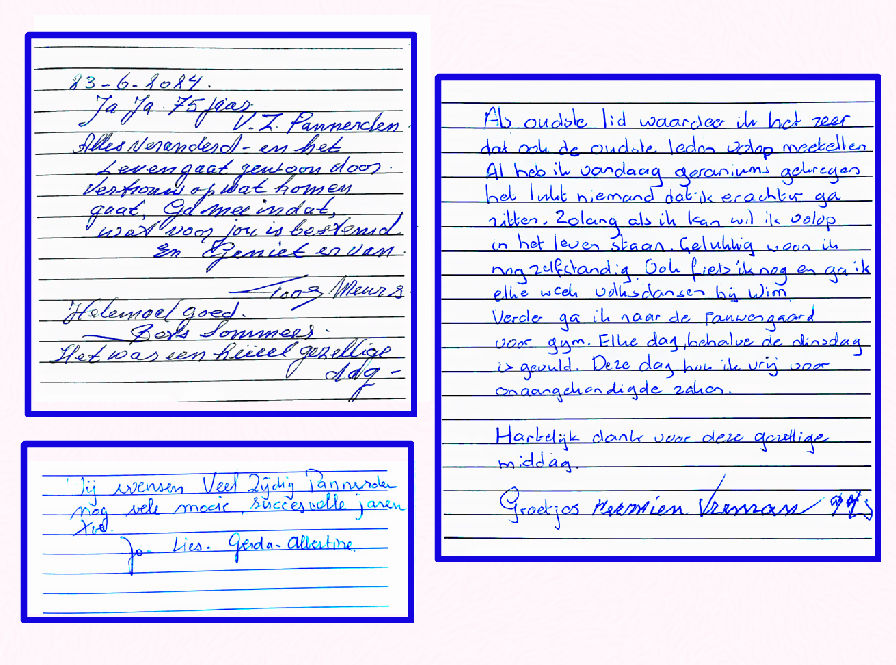 23-6-2024.
Ja Ja 75 jaar
V.Z. Pannerden.
Alles veranderd - en het
Leven gaat gewoon door.
Vertrouw op wat komen
gaat, Ga mee in dat,
wat voor jou is bestemd.
En Geniet er van.
Toos Meurs
Helemaal goed.
Sommers.
Het was een heel gezellige
dag -
Wij wensen Veel Zijdig Pannerden
nog vele mooie, succesvolle jaren
toe!
Jo - Lies - Gerda - Albertine
Als oudste lid waardeer ik het zeer
dat ook de oudste leden volop meetellen
Al heb ik vandaag geraniums gekregen
het lukt niemand dat ik erachter ga
zitten. Zolang als ik kan wil ik volop
in het leven staan. Gelukkig woon ik
nog zelfstandig. Ook fiets ik nog en ga ik
elke week volksdansen bij Wim.
Verder ga ik naar de Panwergaard
voor gym. Elke dag, behalve de dinsdag
is gevuld. Deze dag hou ik vrij voor
onaangekondigde zaken.
Hartelijk dank voor deze gezellige
middag.
Groetjes Hermien Vreman